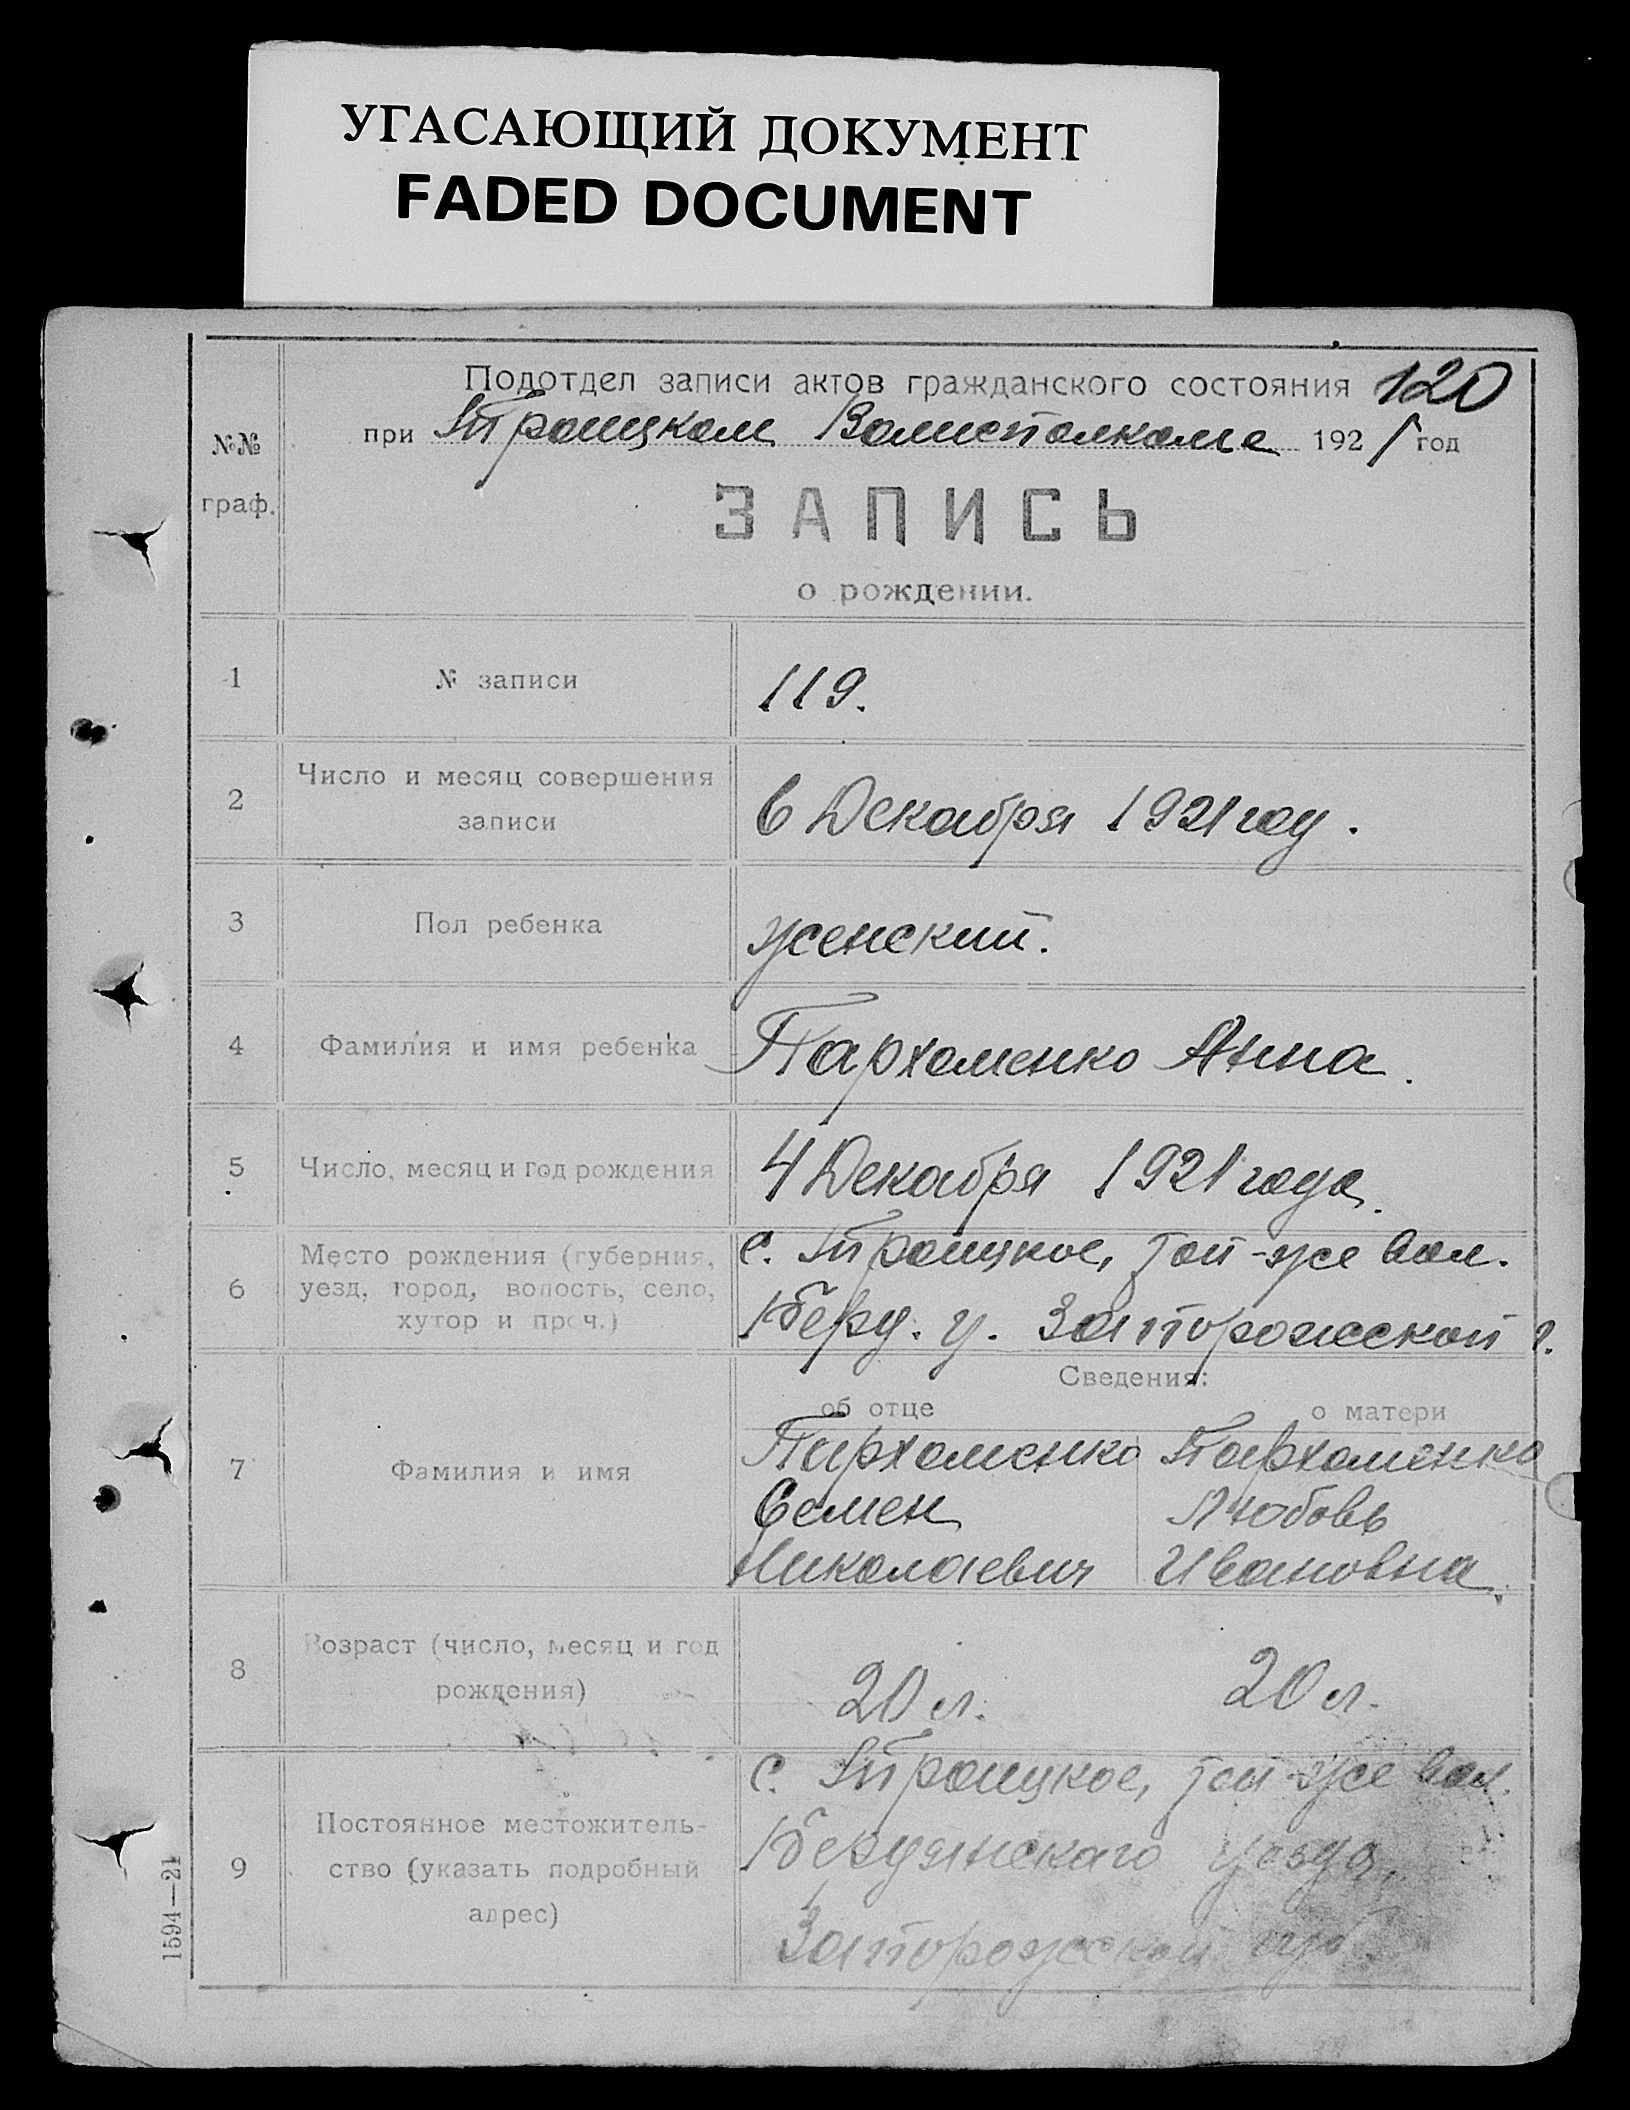 УГАСАЮЩИЙ ДОКУМЕНТ
FADED DOCUMENT
Подотдел записи актов гражданского состояния 120
при Троицком Волисполкоме 1921 год
№№
граф.
ЗАПИСЬ
о рождении.
1 № записи 119.
2 Число и месяц совершения
записи
6 Декабря 1921 году.
3 Пол ребенка женский.
4 Фамилия и имя ребенка Пархоменко Анна.
5 Число, месяц и год рождения 4 Декабря 1921 года.
6 Место рождения (губерния,
уезд, город, волость, село,
хутор и проч.)
с. Троицкое, той-же вол.
Берд. у. Запорожской г.
Сведения:
об отце о матери
7 Фамилия и имя
Пархоменко Пархоменко
Семен Любовь
Николаевич Ивановна.
8 Возраст (число, месяц и год
рождения)
20 л. 20 л.
9 Постоянное местожитель-
ство (указать подробный
адрес)
с. Троицкое, той-же вол.
Бердянскаго уезда,
Запорожской губ.
1594—21